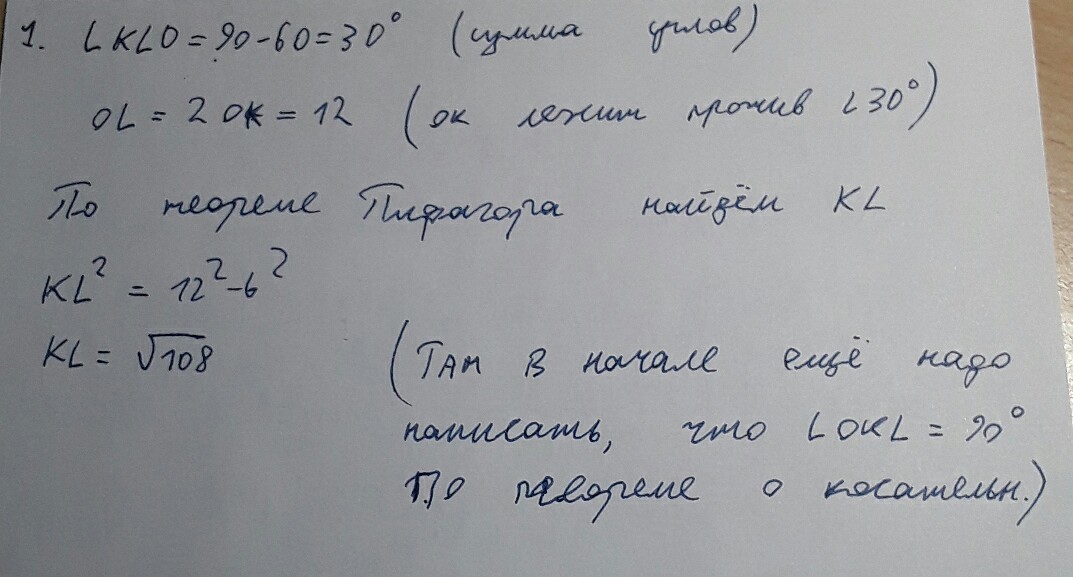 1. ∠KLO = 90-60 = 30° (сумма углов)
OL = 2 OK = 12 (ок лежит против ∠30°)
По теореме Пифагора найдём KL
KL² = 12²-6²
KL = √108
(Там в начале ещё надо
написать, что ∠OKL = 90°
По теореме о касательн.)